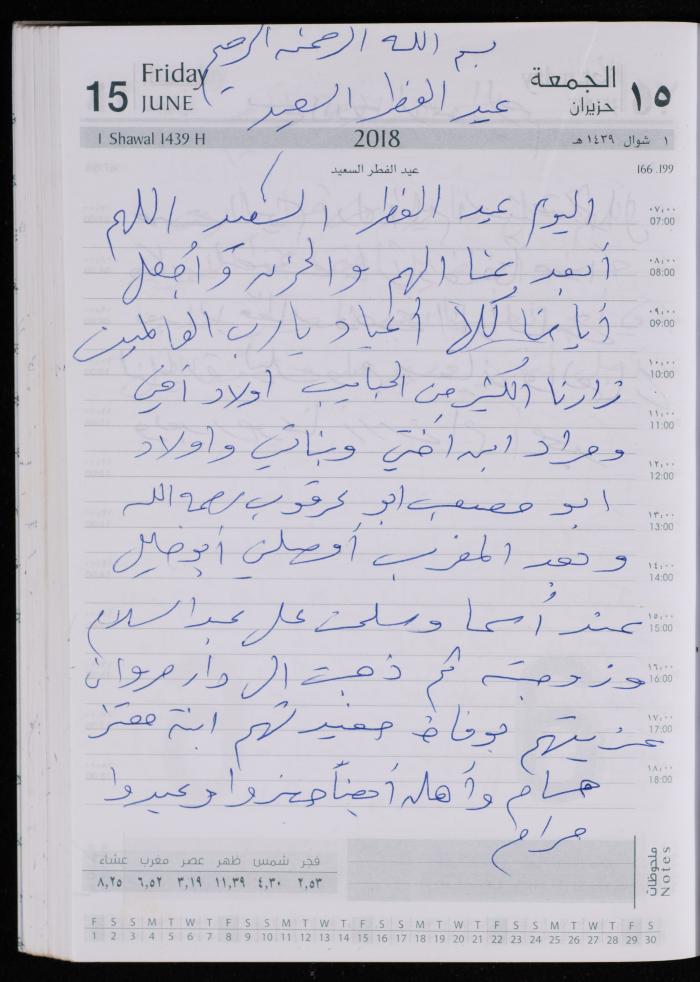 بسم الله الرحمن الرحيم
Friday الجمعة
15 JUNE حزيران ١٥
عيد الفطر السعيد
1 Shawal 1439 H 2018 ١ شوال ١٤٣٩ هـ
عيد الفطر السعيد 166 .199
اليوم عيد الفطر السعيد اللهم
٠٧,٠٠
07:00
أبعد عنا الهم والحزن وأجعل
٠٨,٠٠
08:00
أيامنا كلا أعياد يارب العالمين
٠٩,٠٠
09:00
زارنا الكثير من الحبايب أولاد أخي
١٠,٠٠
10:00
ومراد ابن أختي وبناتي واولاد
١١,٠٠
11:00
١٢,٠٠
12:00
ابو مصعب ابو عرقوب رحمة الله
١٣,٠٠
13:00
وبعد المغرب أوصلني أبو خليل
١٤,٠٠
14:00
عند أسما وسلمت على عبد السلام
١٥,٠٠
15:00
وزوجته ثم ذهبت الى دار مروان
١٦,٠٠
16:00
عزيتهم بوفاة حفيدتهم ابنة معتز
١٧,٠٠
17:00
حسام وأهله أيضاً وعيدوا
١٨,٠٠
18:00
مرام
فجر شمس ظهر عصر مغرب عشاء
٢,٥٣ ٤,٣٠ ١١,٣٩ ٣,١٩ ٦,٥٢ ٨,٢٥
ملحوظات
Notes
F S S M T W T F S S M T W T F S S M T W T F S S M T W T F S
1 2 3 4 5 6 7 8 9 10 11 12 13 14 15 16 17 18 19 20 21 22 23 24 25 26 27 28 29 30